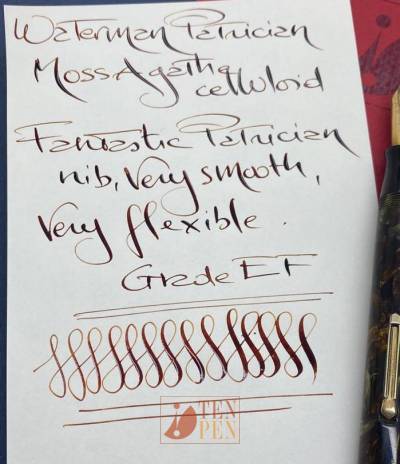 Waterman Patrician
Moss Agatha
celluloid
Fantastic Patrician
nib, Very smooth,
Very flexible.
Grade EF
TEN
PEN